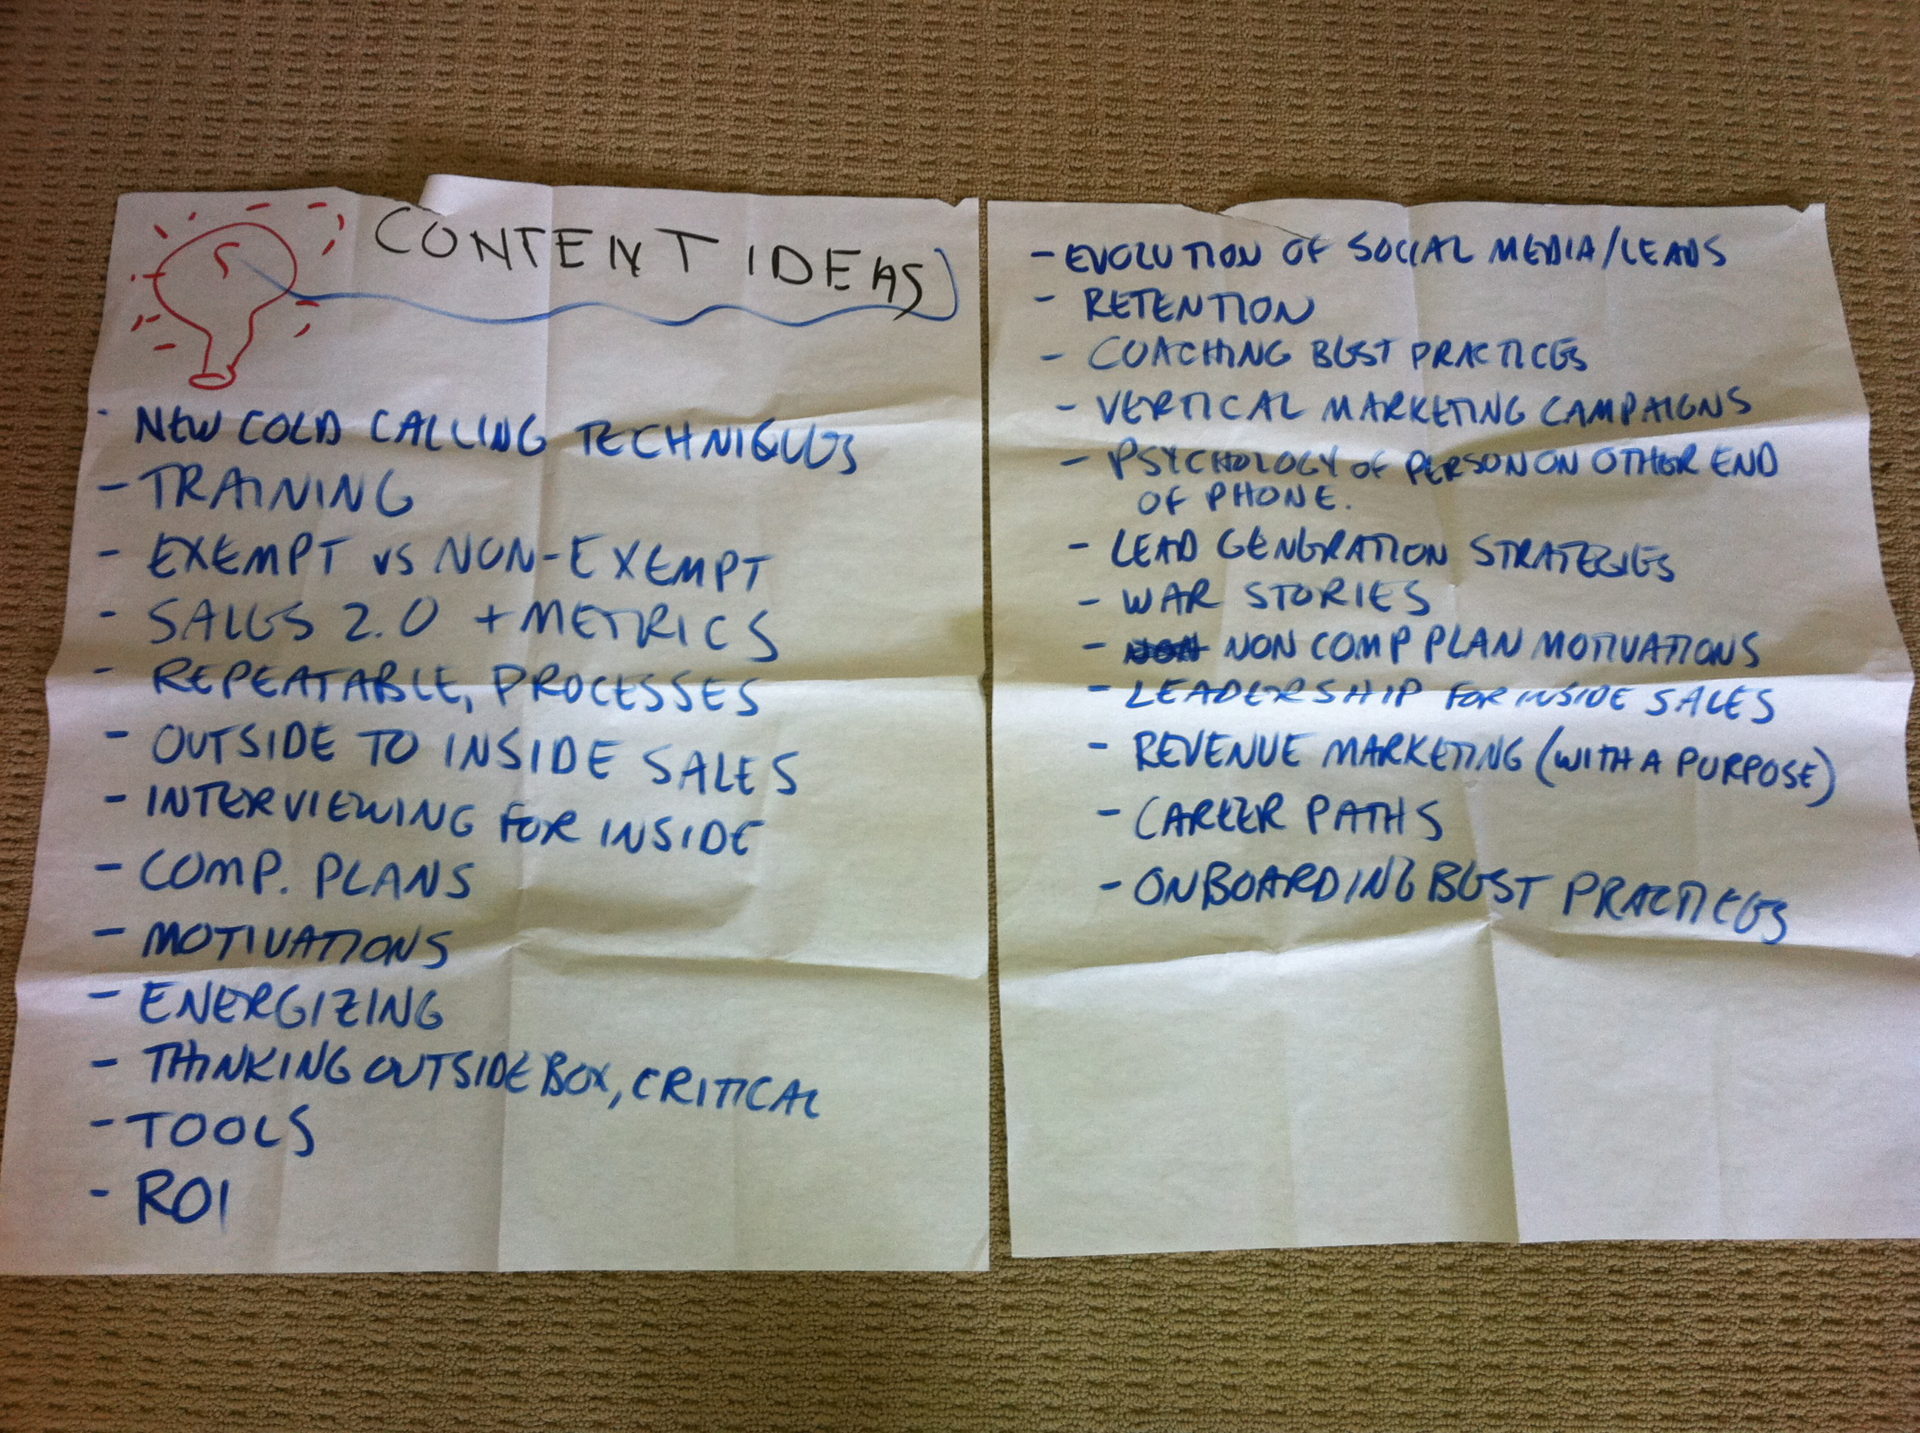 CONTENT IDEAS
- NEW COLD CALLING TECHNIQUES
- TRAINING
- EXEMPT VS NON-EXEMPT
- SALES 2.0 + METRICS
- REPEATABLE, PROCESSES
- OUTSIDE TO INSIDE SALES
- INTERVIEWING FOR INSIDE
- COMP. PLANS
- MOTIVATIONS
- ENERGIZING
- THINKING OUTSIDE BOX, CRITICAL
- TOOLS
- ROI
- EVOLUTION OF SOCIAL MEDIA/LEADS
- RETENTION
- COACHING BEST PRACTICES
- VERTICAL MARKETING CAMPAIGNS
- PSYCHOLOGY OF PERSON ON OTHER END
OF PHONE.
- LEAD GENERATION STRATEGIES
- WAR STORIES
- NON COMP PLAN MOTIVATIONS
- LEADERSHIP FOR INSIDE SALES
- REVENUE MARKETING (WITH A PURPOSE)
- CAREER PATHS
- ONBOARDING BEST PRACTICES